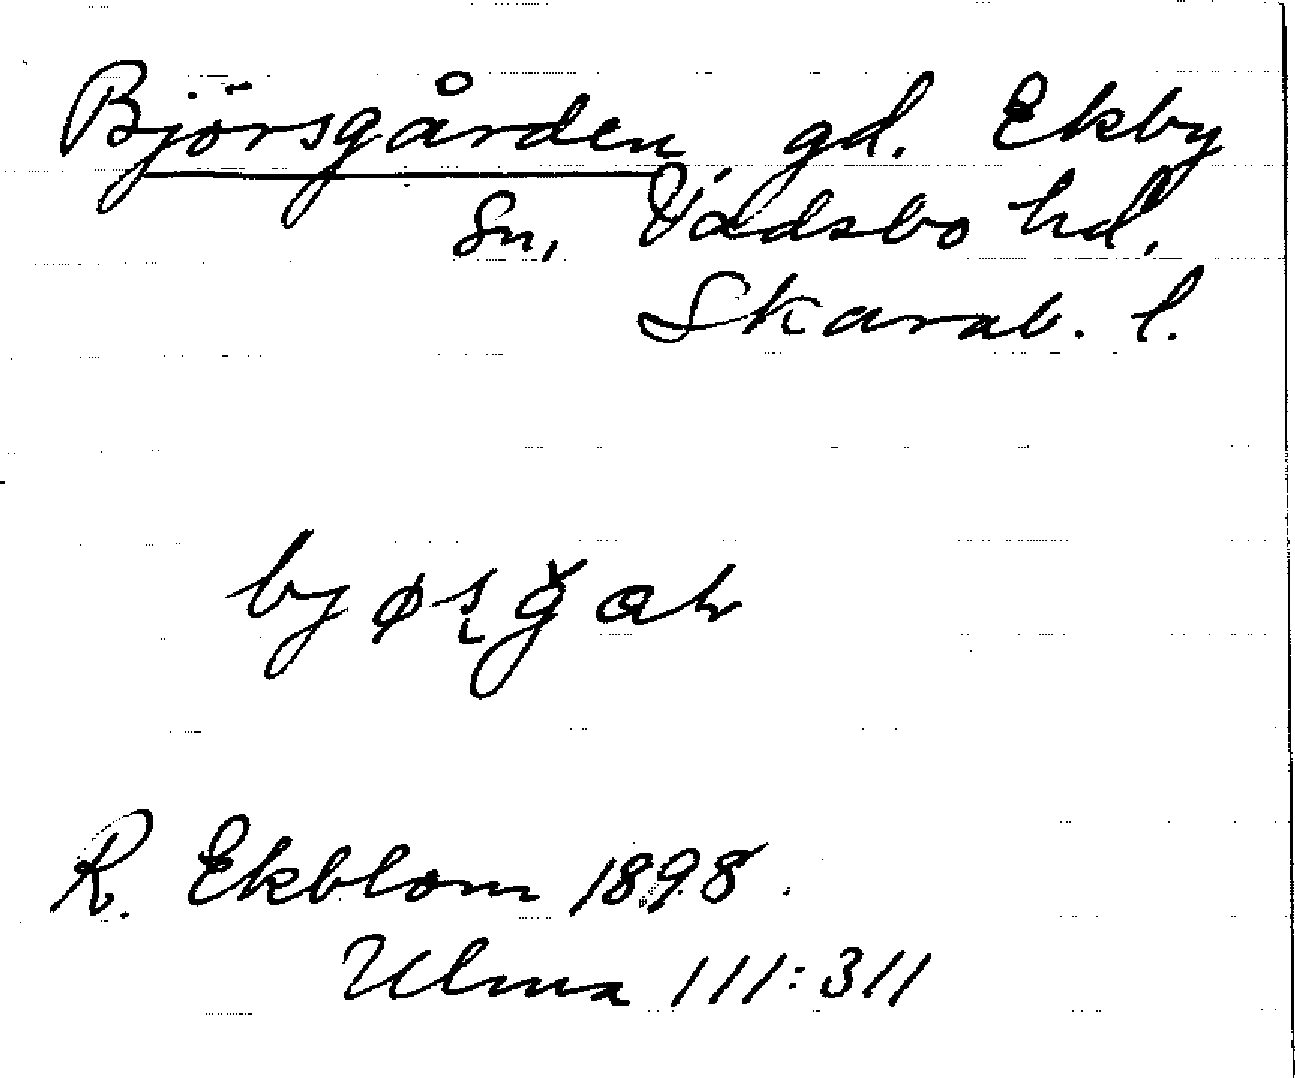 Björsgården, gd. Ekby
Sn, Vadsbo hd.
Skarab. l.
R. Ekblom 1898.
Ulma 111:311